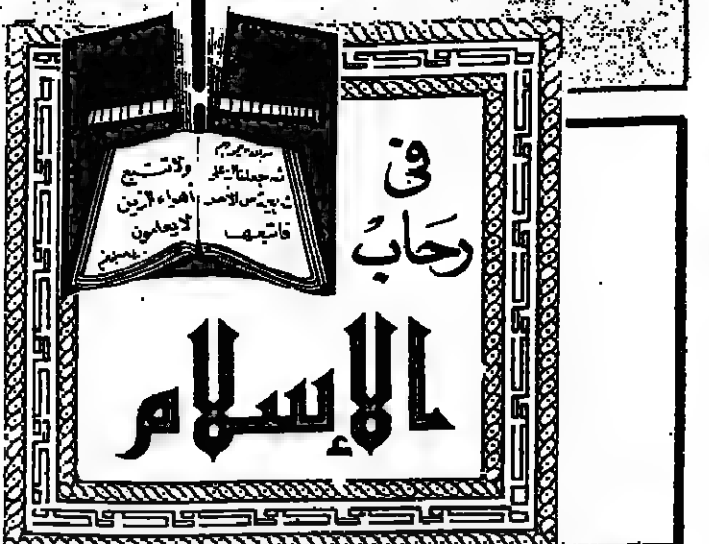 ثم جعلناك على
شريعة من الأمر
فاتبعها
ولا تتبع
أهواء الذين
لا يعلمون
فى
رحابُ
الإسلام